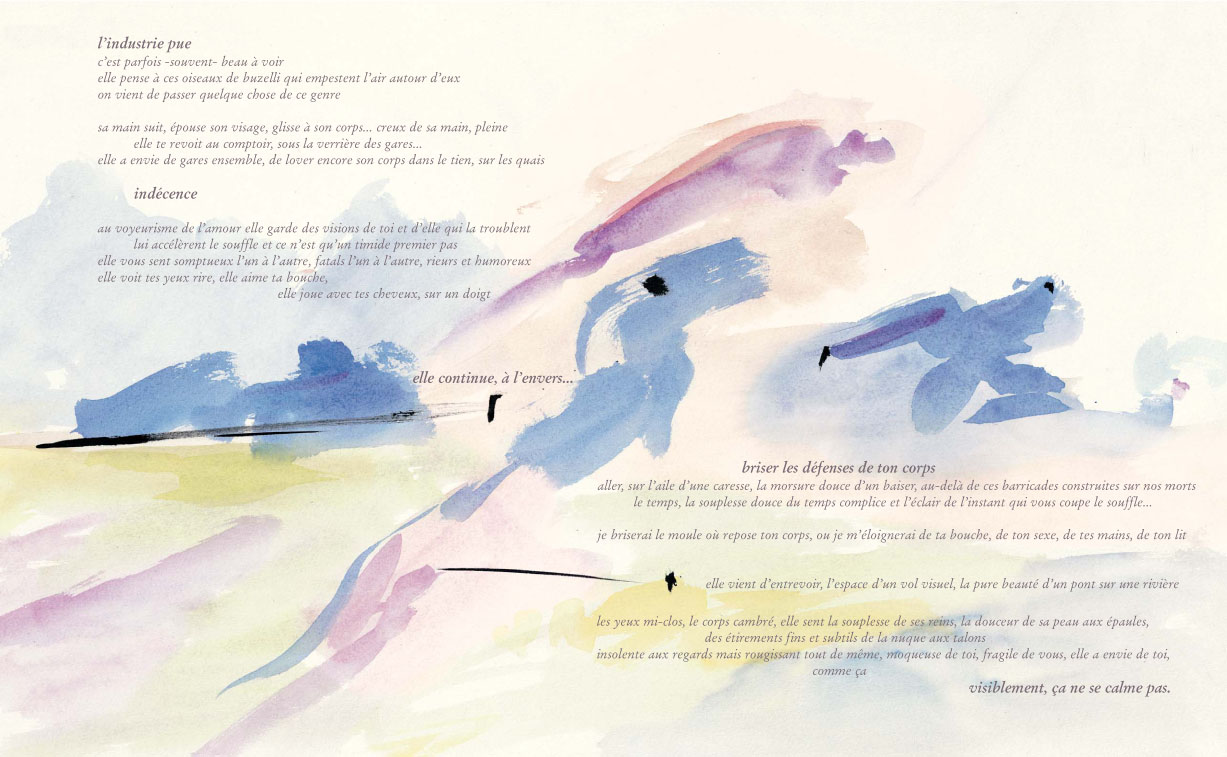 l'industrie pue
c'est parfois -souvent- beau à voir
elle pense à ces oiseaux de buzelli qui empestent l'air autour d'eux
on vient de passer quelque chose de ce genre
sa main suit, épouse son visage, glisse à son corps... creux de sa main, pleine
elle te revoit au comptoir, sous la verrière des gares...
elle a envie de gares ensemble, de lover encore son corps dans le tien, sur les quais
indécence
au voyeurisme de l'amour elle garde des visions de toi et d'elle qui la troublent
lui accélèrent le souffle et ce n'est qu'un timide premier pas
elle vous sent somptueux l'un à l'autre, fatals l'un à l'autre, rieurs et humoreux
elle voit tes yeux rire, elle aime ta bouche,
elle joue avec tes cheveux, sur un doigt
elle continue, à l'envers...
briser les défenses de ton corps
aller, sur l'aile d'une caresse, la morsure douce d'un baiser, au-delà de ces barricades construites sur nos morts
le temps, la souplesse douce du temps complice et l'éclair de l'instant qui vous coupe le souffle...
je briserai le moule où repose ton corps, ou je m'éloignerai de ta bouche, de ton sexe, de tes mains, de ton lit
elle vient d'entrevoir, l'espace d'un vol visuel, la pure beauté d'un pont sur une rivière
les yeux mi-clos, le corps cambré, elle sent la souplesse de ses reins, la douceur de sa peau aux épaules,
des étirements fins et subtils de la nuque aux talons
insolente aux regards mais rougissant tout de même, moqueuse de toi, fragile de vous, elle a envie de toi,
comme ça
visiblement, ça ne se calme pas.